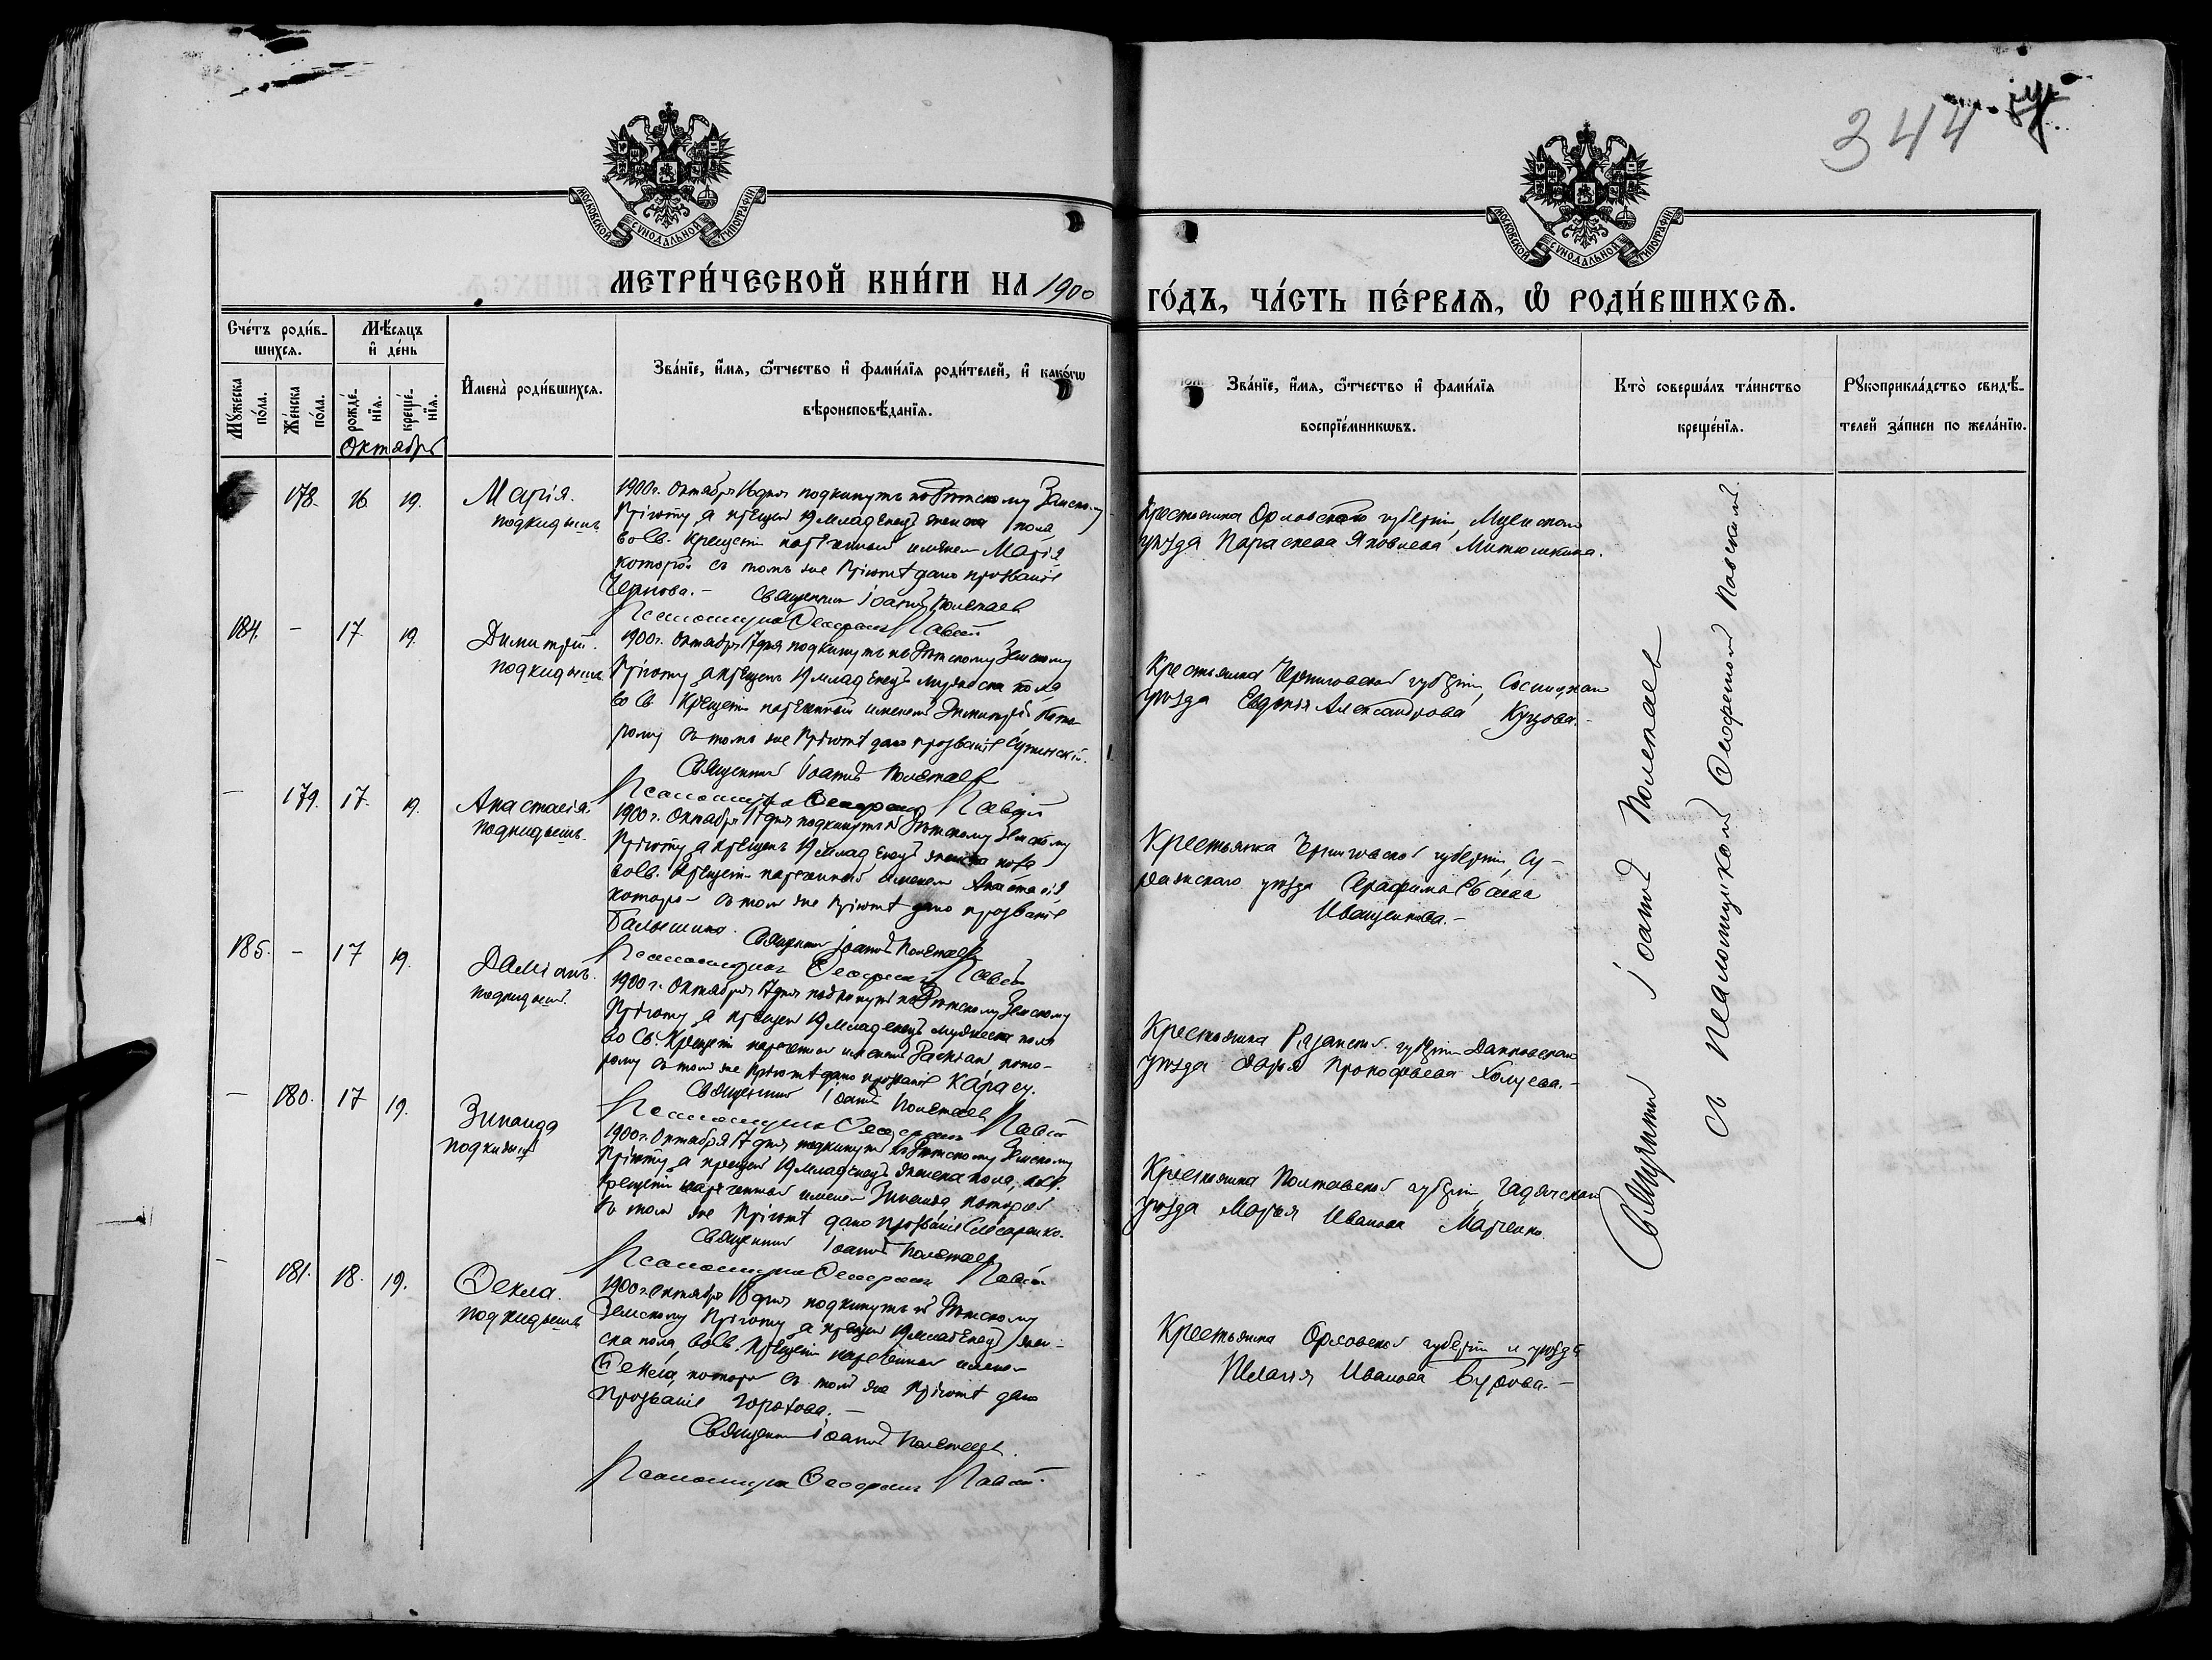 344
МОСКОВСКОЙ СѴНОДАЛЬНОЙ ТИПОГРАФІИ
МОСКОВСКОЙ СѴНОДАЛЬНОЙ ТИПОГРАФІИ
МЕТРИ́ЧЕСКОЙ КНИ́ГИ НА 1900
ГО́ДЪ, ЧА́СТЬ ПЕ́РВАѦ, Ѽ РОДИ́ВШИХСѦ.
Сче́тъ роди́в-
шихсѧ.
Мѣ́сѧцъ
и҆ де́нь
Мꙋ́жеска
по́ла.
Же́нска
по́ла.
рожде́-
нїѧ.
креще́-
нїѧ.
Октябрь
И҆мена̀ роди́вшихсѧ.
Зва́нїе, и҆́мѧ, ѻ҆́тчество и҆ фами́лїѧ роди́телей, и҆ како́гѡ
вѣроисповѣ́данїѧ.
Зва́нїе, и҆́мѧ, ѻ҆́тчество и҆ фами́лїѧ
воспрїе́мникѡвъ.
Кто̀ соверша́лъ та́инство
креще́нїѧ.
Рꙋкоприкла́дство свидѣ́-
телей за́писи по жела́нїю.
178. 16 19. Марія.
подкидышъ
1900 г. Октября 16 дня подкинутъ къ Дѣтскому Земскому
Пріюту, а крещенъ 19 младенецъ женска пола,
во Св. Крещеніи нареченный именемъ Марія
которой въ томъ же Пріютѣ дано прозваніе
Чернова.- Священникъ Іоаннъ Полетаев
Псаломщикъ Павскій
Крестьянка Орловской губерніи, Мценскаго
уѣзда Параскева Яковлева Митюшкина.
184. - 17. 19. Димитрій.
подкидышъ.
1900 г. Октября 17 дня подкинутъ къ Дѣтскому Земскому
Пріюту, а крещенъ 19 младенецъ мужеска пола
во Св. Крещеніи нареченный именемъ Димитрій кото-
рому въ томъ же Пріютѣ дано прозваніе
Священникъ Іоаннъ Полетаев
Псаломщикъ Павскій
Крестьянка Черниговской губерніи, Сосницкаго
уѣзда Евдокія Александрова Куцова.-
- 179. 17. 19. Анастасія.
подкидышъ.
1900 г. Октября 17 дня подкинутъ къ Дѣтскому Земскому
Пріюту, а крещенъ 19 младенецъ женска пола
во Св. Крещеніи нареченный именемъ Анастасія
которой въ томъ же Пріютѣ дано прозваніе
Священникъ Іоаннъ Полетаев
Псаломщикъ Павскій
Крестьянка Черниговской губерніи, Су-
ражскаго уѣзда Серафима
Иващенкова.-
185. - 17 19. Даміанъ.
подкидышъ.
1900 г. Октября 17 дня подкинутъ къ Дѣтскому Земскому
Пріюту, а крещенъ 19 младенецъ мужеска пола
во Св. Крещеніи нареченный именемъ кото-
рому въ томъ же Пріютѣ дано прозваніе
Священникъ Іоаннъ Полетаев
Псаломщикъ Павскій
Крестьянка Рязанской губерніи Данковскаго
уѣзда Дарья Прокофьева
- 180. 17 19. Зинаида
подкидышъ
1900 г. Октября 17 дня подкинутъ къ Дѣтскому Земскому
Пріюту, а крещенъ 19 младенецъ женска пола, во Св.
Крещеніи нареченный именемъ Зинаида, которой
въ томъ же Пріютѣ дано прозваніе Слесаренко.
Священникъ Іоаннъ Полетаев
Псаломщикъ Павскій
Крестьянка Полтавской губерніи, Гадячскаго
уѣзда Марья Иванова Марченко.
- 181. 18. 19. Ѳекла.
подкидышъ
1900 г. Октября 18 дня подкинутъ къ Дѣтскому
Земскому Пріюту, а крещенъ 19 младенецъ жен-
ска пола, во Св. Крещеніи нареченный именемъ
Ѳекла, которой въ томъ же Пріютѣ дано
прозваніе Горохова.-
Священникъ Іоаннъ Полетаев.
Псаломщикъ Павскій.
Крестьянка Орловской губерніи и уѣзда
Пелагія Иванова Бурова.-
Священникъ Іоаннъ Полетаев
съ псаломщикомъ Павскимъ.